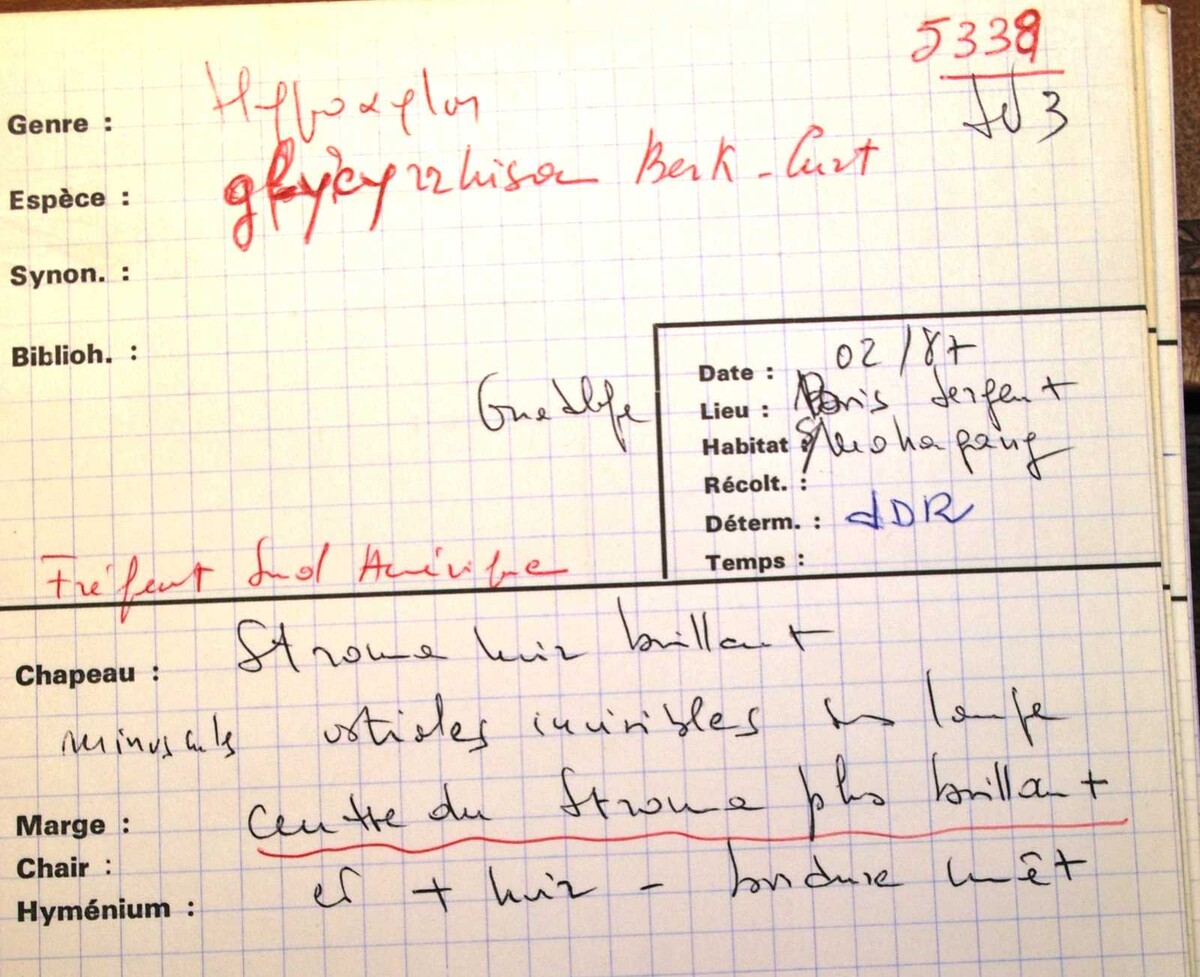 5339
Genre : Hypoxylon
JV 3
Espèce : glycyrrhiza Berk - Curt
Synon. :
Biblioh. :
Date : 02/87
Lieu : Bois Sergent
Guadlpe
Habitat : Mohagany
Récolt. :
Déterm. : dDR
Temps :
Fréquent Sud Amérique
Chapeau : Stroma noir brillant
minuscules ostioles invisibles sans loupe
Marge : Centre du Stroma plus brillant
Chair :
Hyménium : et + noir - bordure mat